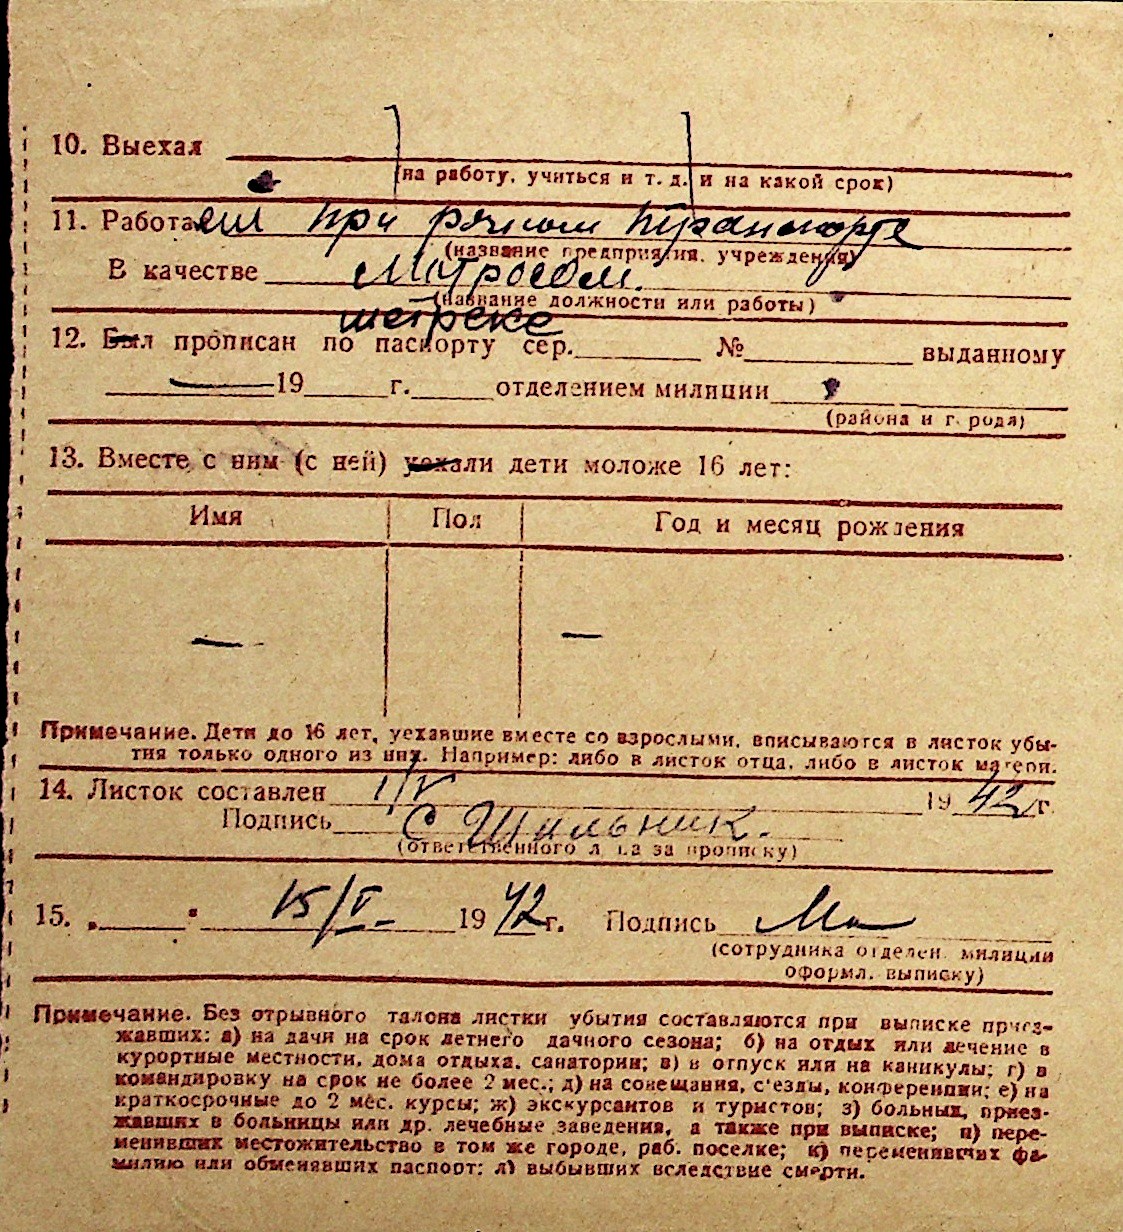 10. Выехал
(на работу, учиться и т. д. и на какой срок)
11. Работал при речном транспорте
(название предприятия, учреждения)
В качестве матросом.
(название должности или работы)
12. Был прописан по паспорту сер. № выданному
19 г. отделением милиции
(района и города)
13. Вместе с ним (с ней) уехали дети моложе 16 лет:
Имя Пол Год и месяц рождения
— —
Примечание. Дети до 16 лет, уехавшие вместе со взрослыми, вписываются в листок убы-
тия только одного из них. Например: либо в листок отца, либо в листок матери.
14. Листок составлен 1/V 1942 г.
Подпись
(ответственного лица за прописку)
15. „ " 15/V 1942 г. Подпись
(сотрудника отделен. милиции
оформл. выписку)
Примечание. Без отрывного талона листки убытия составляются при выписке приез-
жавших: а) на дачи на срок летнего дачного сезона; б) на отдых или лечение в
курортные местности, дома отдыха, санатории; в) в отпуск или на каникулы; г) в
командировку на срок не более 2 мес.; д) на совещания, с'езды, конференции; е) на
краткосрочные до 2 мес. курсы; ж) экскурсантов и туристов; з) больных, приез-
жавших в больницы или др. лечебные заведения, а также при выписке; и) пере-
менивших местожительство в том же городе, раб. поселке; к) переменивших фа-
милию или обменявших паспорт; л) выбывших вследствие смерти.